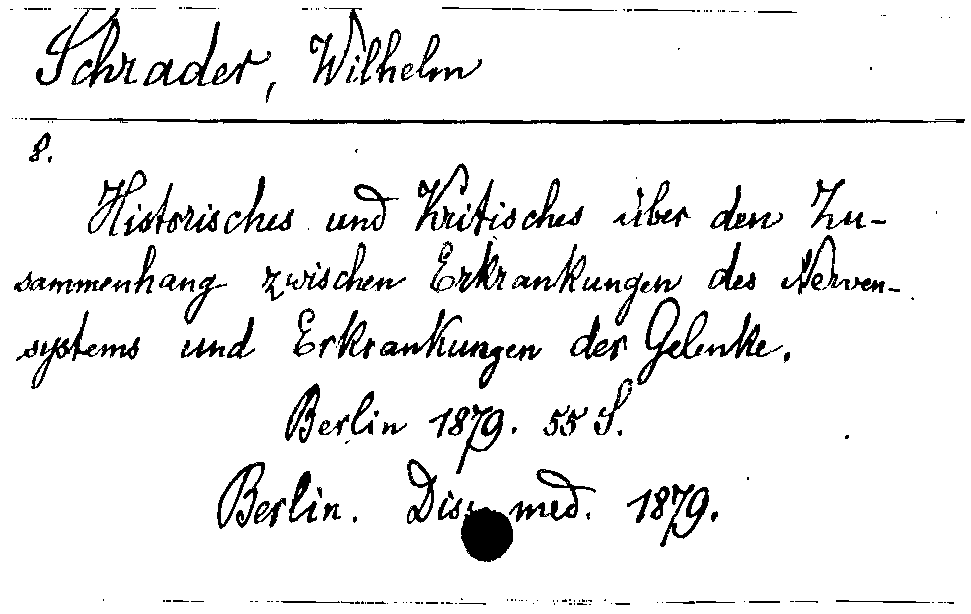 Schrader, Wilhelm
8.
Historisches und Kritisches über den Zu-
sammenhang zwischen Erkrankungen des Nerven-
systems und Erkrankungen der Gelenke.
Berlin 1879. 55 S.
Berlin. Diss. med. 1879.